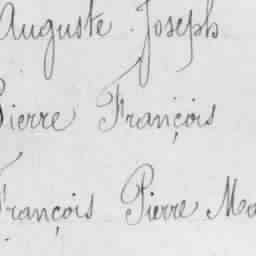 Auguste Joseph
Pierre François
François Pierre Ma